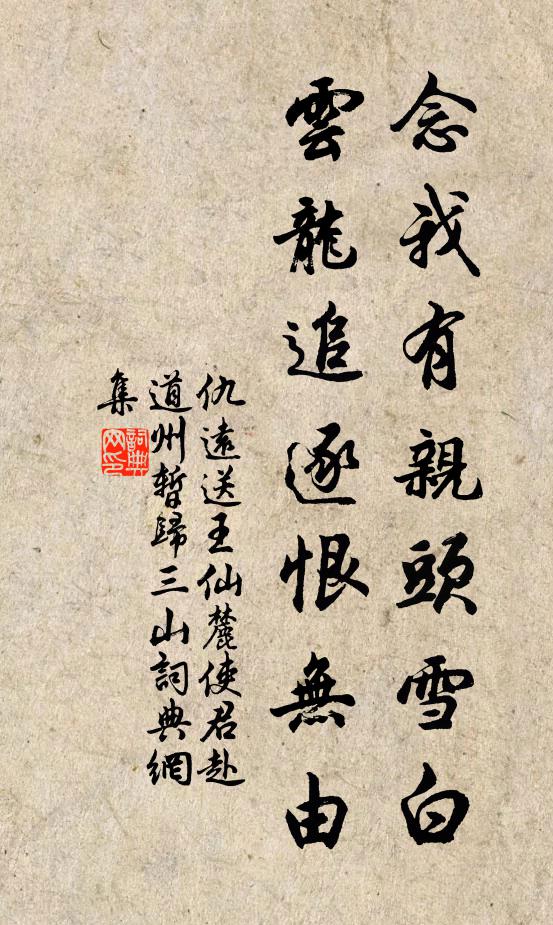 念我有親頭雪白
雲龍追逐恨無由
仇遠送王仙麓使君赴
道州暫歸三山詞典網
集
詞典
网印